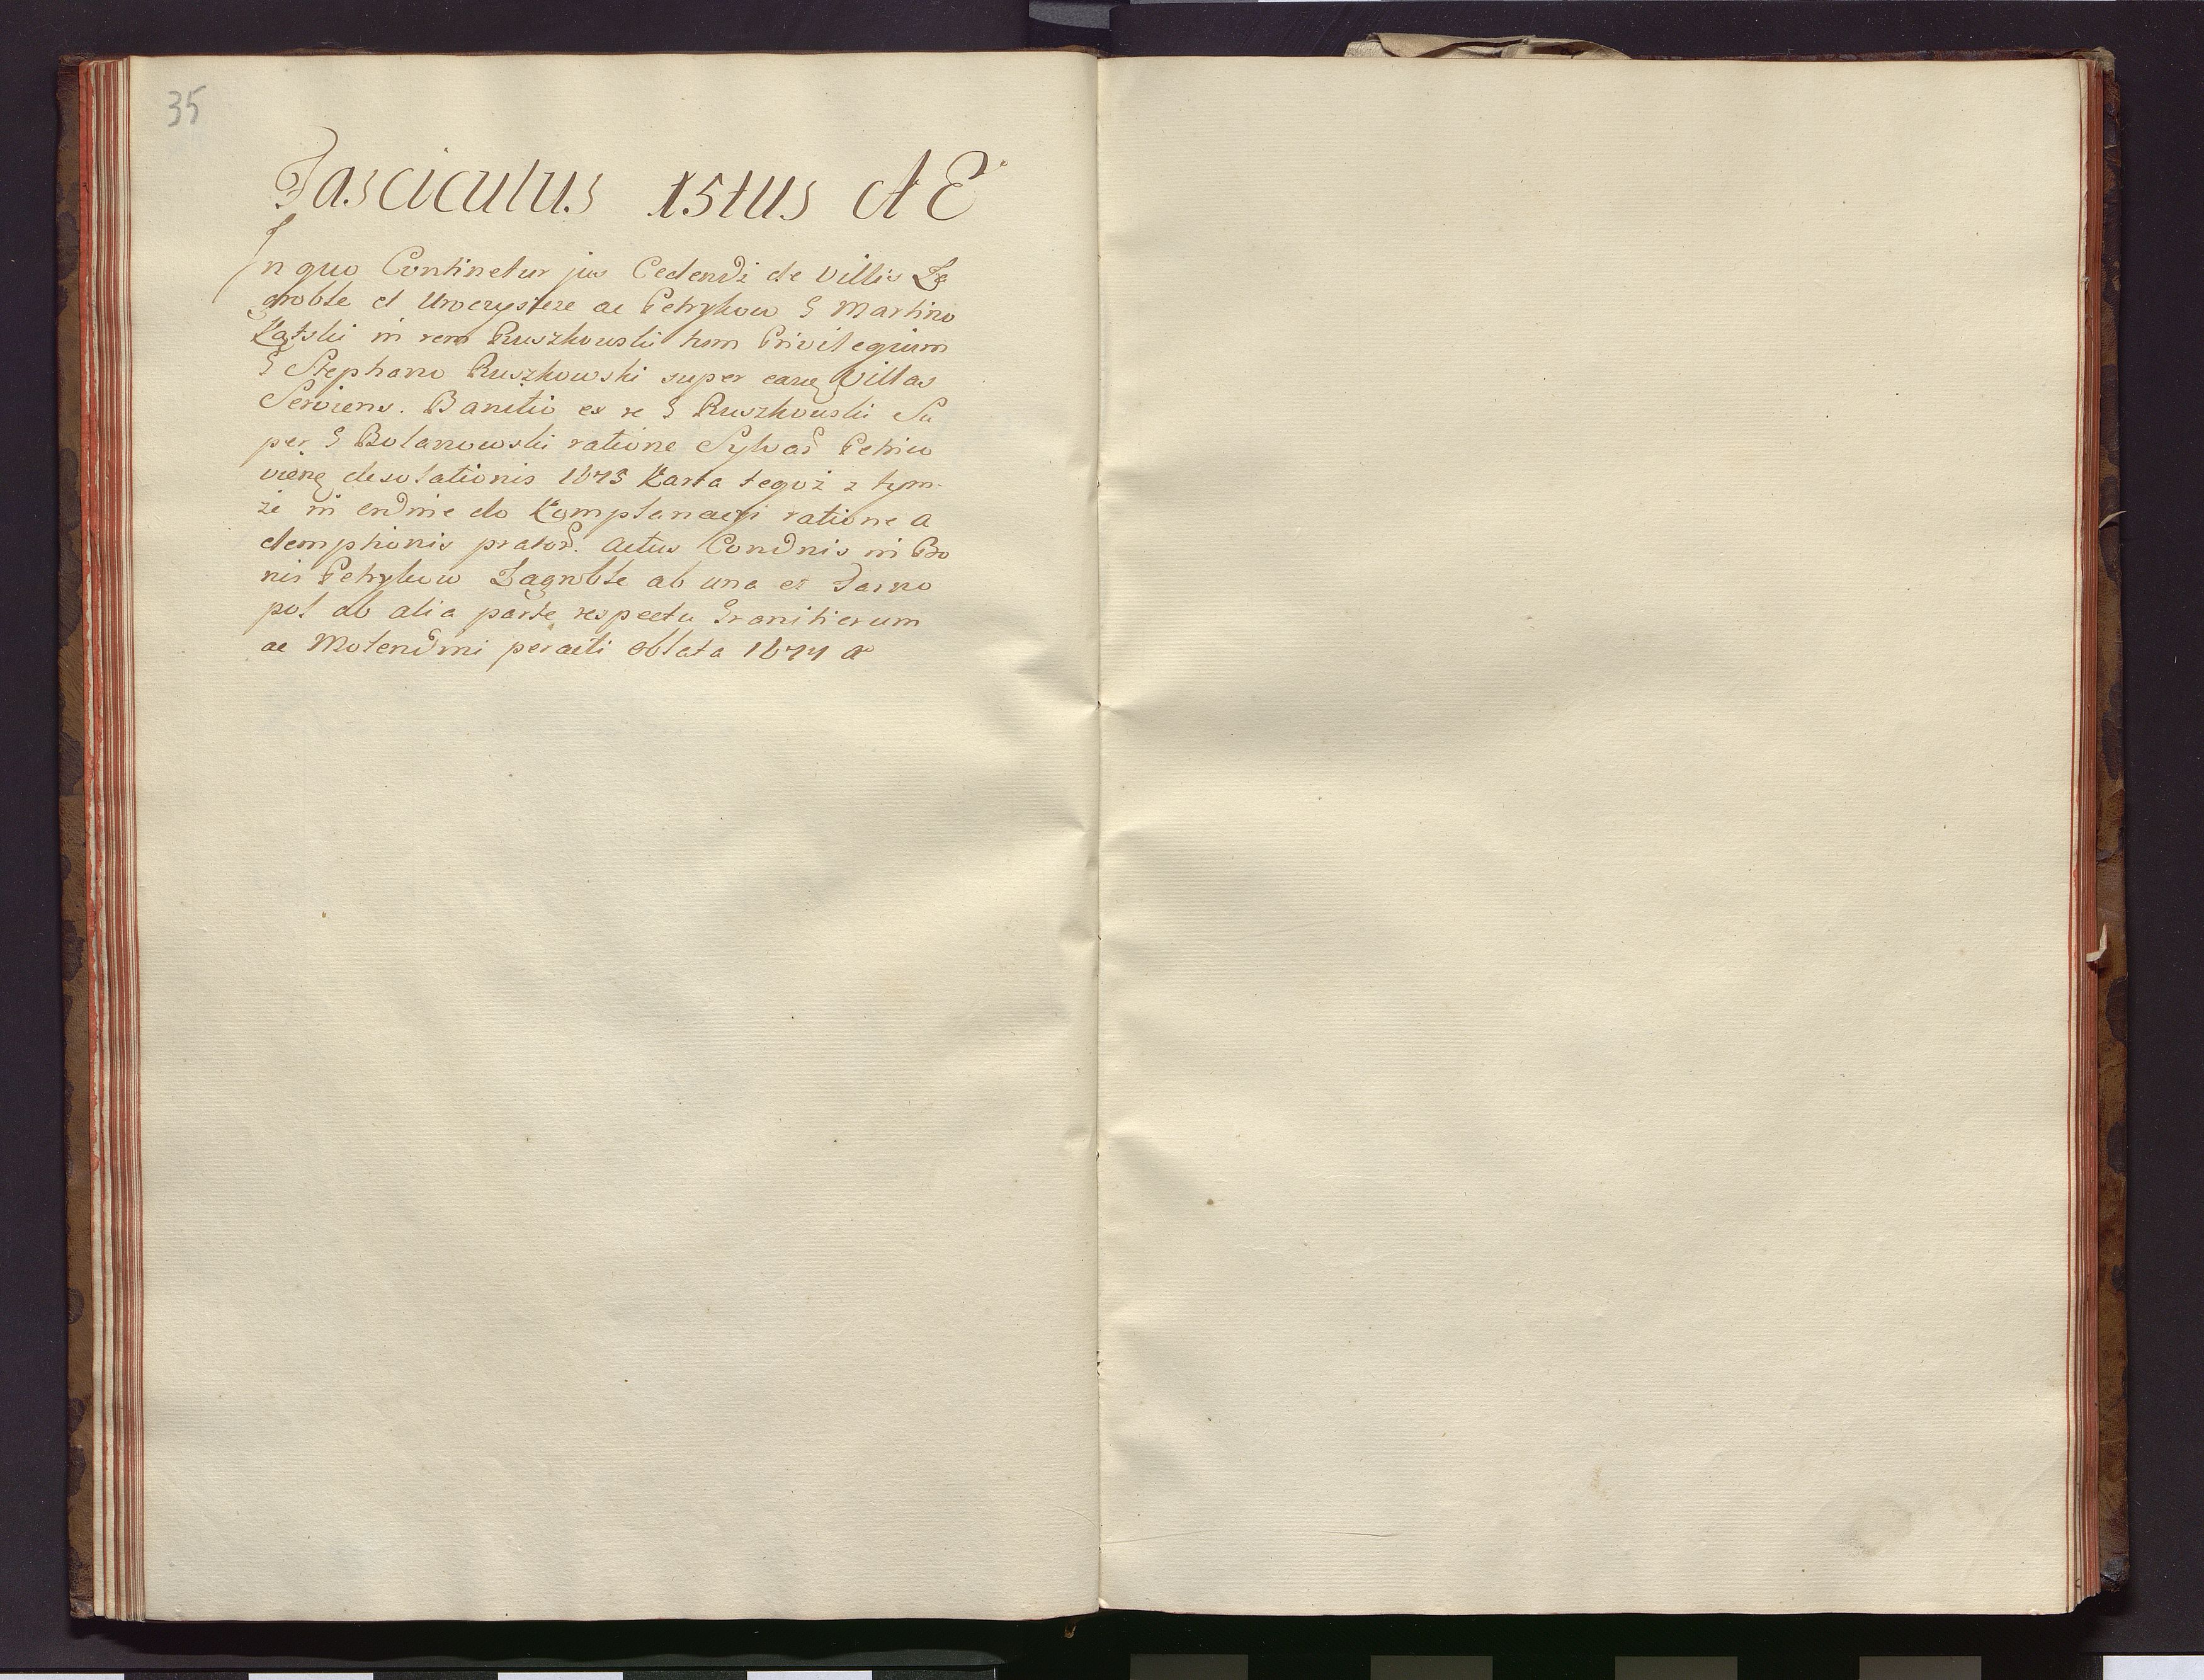 35
Fasciculus 15tus AE
In quo Continetur jus Cedendi de Villis Za
groble et Uroczystere ac Petrykow G Martino
Kątski in rem Ruszkowski tum Privilegium
G Stephano Ruszkowski super easq Villas
Serviens. Banitio ex re G Ruszkowski Su
per G Bolanowski ratione Sylvar Petrico
vienq desolationis 1673 Karta tegoż z tym
że in ordine do Komplanacyi ratione a
demptionis prator. Actus Condnis in Bo
nis Petrykow Zagroble ab una et Tarno
pol ab alia parte respectu Granitierum
ac Molendini peracti oblata 1677 a